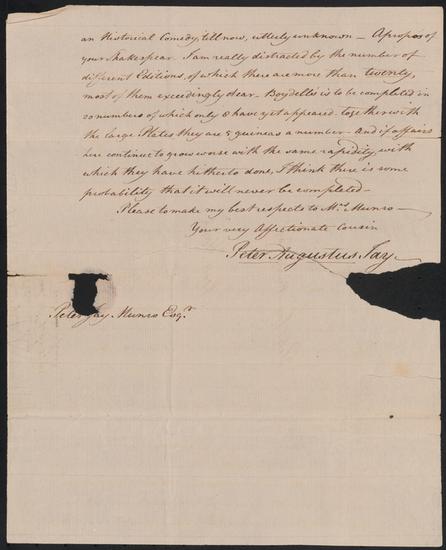 an Historical Comedy, till now, utterly unknown — Apropos of
your Shakespear. I am really distracted by the number of
different Editions, of which there are more than twenty,
most of them exceedingly dear. Boydells is to be completed in
20 numbers of which only 8 have yet appeared together with
the large Plates they are 5 guineas a number — And if affairs
here continue to grow worse with the same rapidity, with
which they have hitherto done, I think there is some
probability that it will never be completed —
Please to make my best respects to Mrs Munro —
Your very Affectionate Cousin
Peter Augustus Jay
Peter Jay Munro Esqr